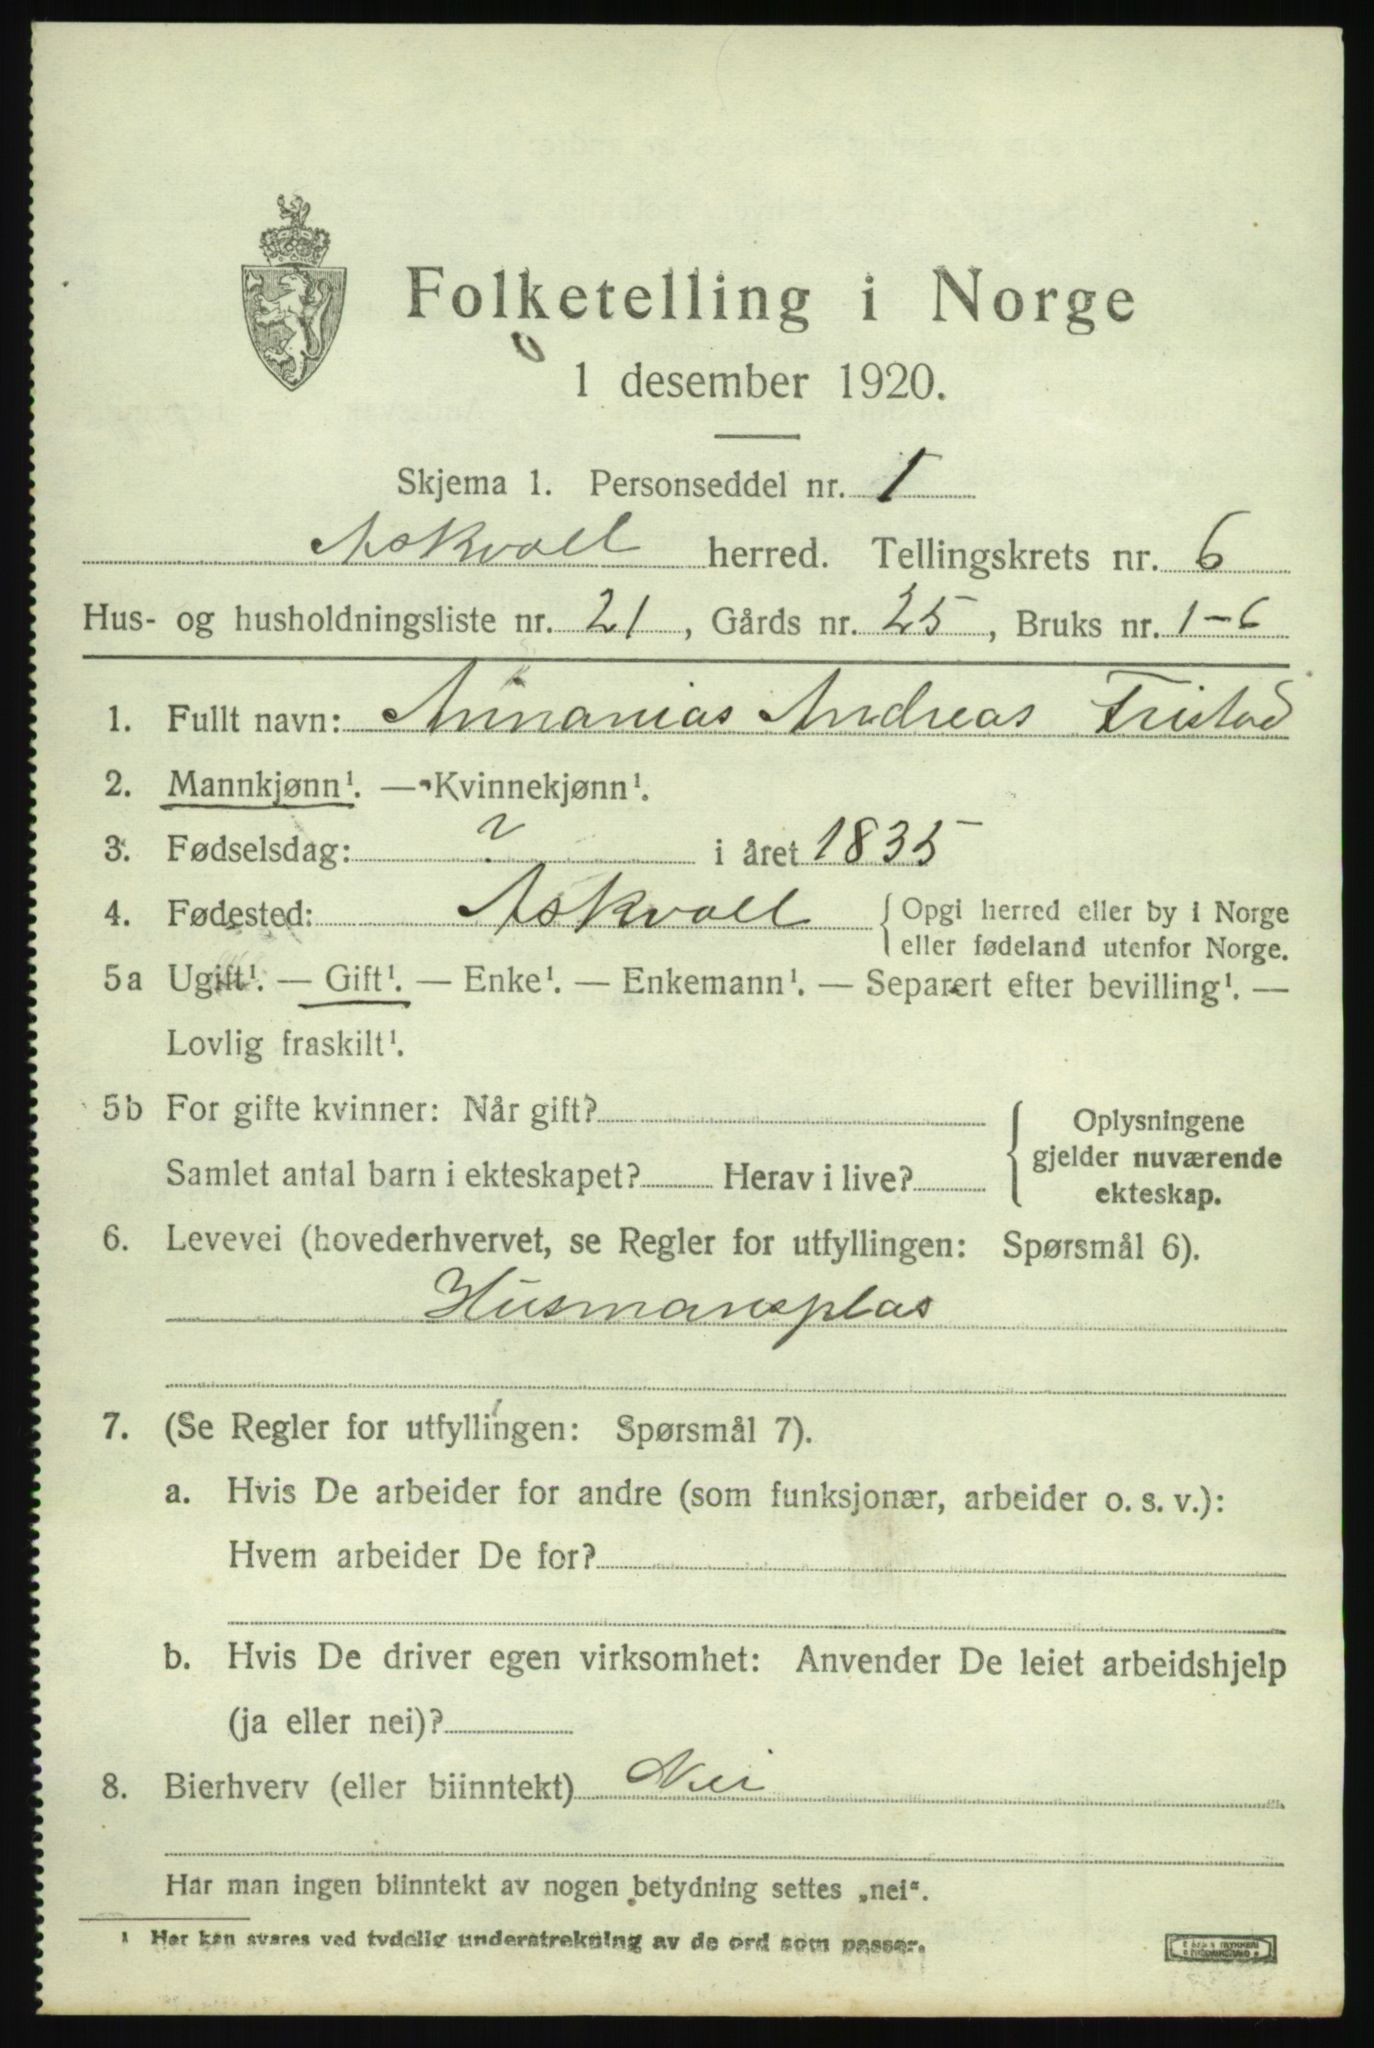 Folketelling i Norge
1 desember 1920.
Skjema 1. Personseddel nr. 1
Askvoll herred. Tellingskrets nr. 6
Hus- og husholdningsliste nr. 21, Gårds nr. 25, Bruks nr. 1-6
1. Fullt navn: Annanias Andreas Fristad
2. Mannkjønn¹. — Kvinnekjønn¹.
3. Fødselsdag: ? i året 1835
4. Fødested: Askvoll { Opgi herred eller by i Norge
eller fødeland utenfor Norge.
5a Ugift¹. — Gift¹. — Enke¹. — Enkemann¹. — Separert efter bevilling¹. —
Lovlig fraskilt¹.
5b For gifte kvinner: Når gift? { Oplysningene
gjelder nuværende
Samlet antal barn i ekteskapet? Herav i live? ekteskap.
6. Levevei (hovederhvervet, se Regler for utfyllingen: Spørsmål 6).
Husmansplas
7. (Se Regler for utfyllingen: Spørsmål 7).
a. Hvis De arbeider for andre (som funksjonær, arbeider o. s. v.):
Hvem arbeider De for?
b. Hvis De driver egen virksomhet: Anvender De leiet arbeidshjelp
(ja eller nei)?
8. Bierhverv (eller biinntekt) Nei
Har man ingen biinntekt av nogen betydning settes „nei“.
¹ Her kan svares ved tydelig understrekning av de ord som passer.